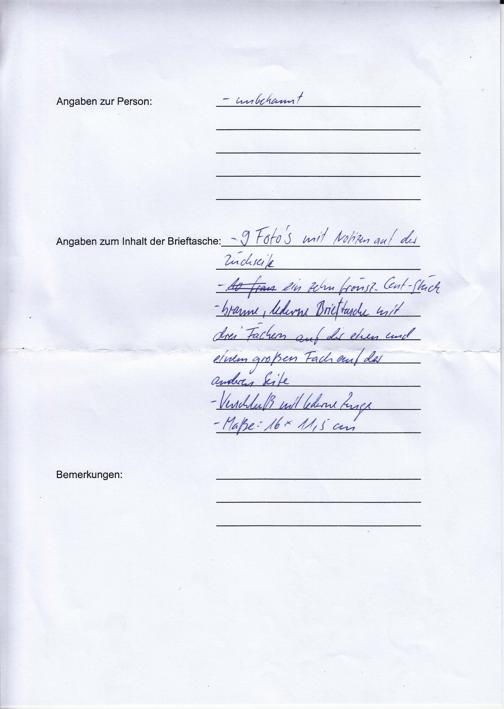 Angaben zur Person:
- unbekannt
Angaben zum Inhalt der Brieftasche:
- 9 Foto's mit Notizen auf der
Rückseite
- ein zehn französ. Cent-Stück
- braune, lederne Brieftasche mit
drei Fächern auf der einen und
einem großen Fach auf der
anderen Seite
- Verschluß mit lederne Zunge
- Maße: 16 x 11,5 cm
Bemerkungen: